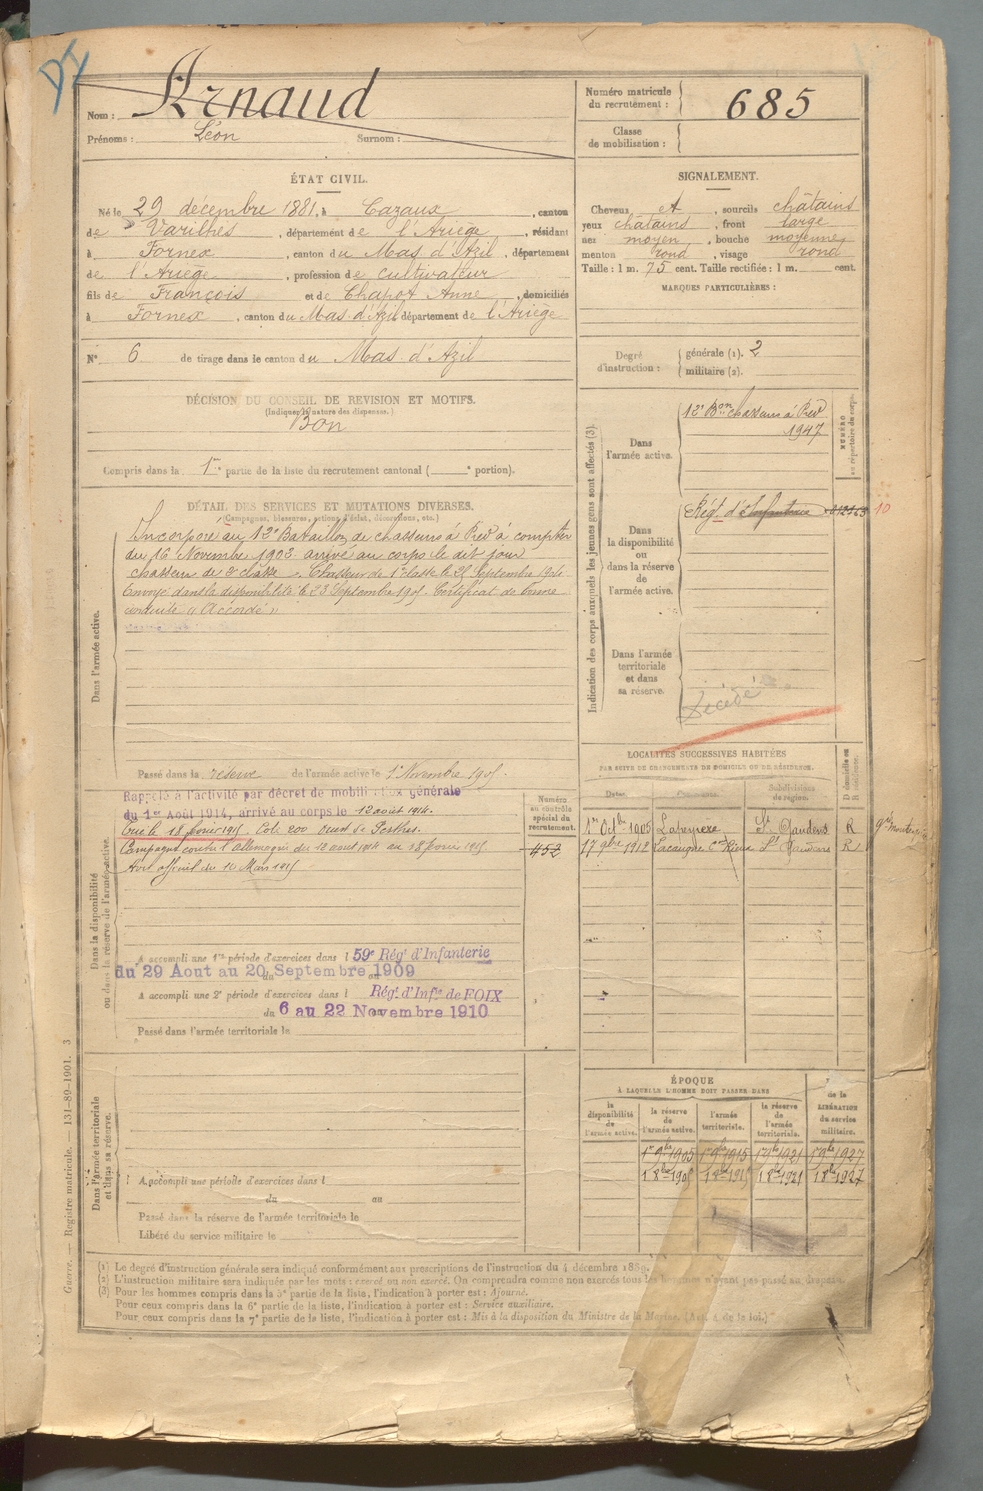 DI
Nom : Arnaud
Prénoms : Léon Surnom :
Numéro matricule du recrutement : 685
Classe de mobilisation :
ÉTAT CIVIL.
Né le 29 décembre 1881, à Cazaux, canton
de Varilhes, département de l'Ariège, résidant
à Fornex, canton du Mas d'Azil, département
de l'Ariège, profession de cultivateur
fils de François et de Chapot Anne, domiciliés
à Fornex, canton du Mas d'Azil département de l'Ariège
N° 6 de tirage dans le canton du Mas d'Azil
SIGNALEMENT.
Cheveux et, sourcils châtains
yeux châtains, front large
nez moyen, bouche moyenne
menton rond, visage rond
Taille : 1 m. 75 cent. Taille rectifiée : 1 m. cent.
MARQUES PARTICULIÈRES :
Degré d'instruction : générale (1). 2
militaire (2).
DÉCISION DU CONSEIL DE REVISION ET MOTIFS.
(Indiquer la nature des dispenses.)
Bon
Compris dans la 1re partie de la liste du recrutement cantonal ( e portion).
DÉTAIL DES SERVICES ET MUTATIONS DIVERSES.
(Campagnes, blessures, actions d'éclat, décorations, etc.)
Dans l'armée active.
Incorporé au 12e Bataillon de chasseurs à Pied à compter
du 16 Novembre 1902 arrivé au corps le dit jour
chasseur de 2e classe. Chasseur de 1e classe le 25 Septembre 1904
Envoyé dans la disponibilité le 23 Septembre 1905. Certificat de bonne
conduite « Accordé »
Passé dans la réserve de l'armée active le 1er Novembre 1905.
Indication des corps auxquels les jeunes gens sont affectés (3).
Dans l'armée active.
12e Bon chasseurs à Pied
1947
NUMÉRO au répertoire du corps.
Dans la disponibilité ou dans la réserve de l'armée active.
Régt d'Infanterie 10
Dans l'armée territoriale et dans sa réserve.
Décédé
Dans la disponibilité ou dans la réserve de l'armée active.
Rappelé à l'activité par décret de mobilisation générale
du 1er Août 1914, arrivé au corps le 12 août 1914.
Tué le 18 février 1915. Cote 200 ouest de Perthes.
Campagne contre l'Allemagne du 12 août 1914 au 18 février 1915
Avis officiel du 10 Mars 1915
Numéro au contrôle spécial du recrutement.
452
A accompli une 1re période d'exercices dans l 59e Régt d'Infanterie
du 29 Aout au 20 Septembre 1909
A accompli une 2e période d'exercices dans l Régt d'Infie de FOIX
du 6 au 22 Novembre 1910
Passé dans l'armée territoriale le
LOCALITÉS SUCCESSIVES HABITÉES
PAR SUITE DE CHANGEMENTS DE DOMICILE OU DE RÉSIDENCE.
Dates. Communes. Subdivisions de region. D domicile ou R résidence.
1er Octbre 1905 St Gaudens R
17 9bre 1912 St Gaudens R
ÉPOQUE
À LAQUELLE L'HOMME DOIT PASSER DANS
la disponibilité de l'armée active. la réserve de l'armée active. l'armée territoriale. la réserve de l'armée territoriale. DATE de la LIBÉRATION du service militaire.
1er 9bre 1905 1er 9bre 1915 1er 9bre 1921 1er 9bre 1927
1 8bre 1905 1 8bre 1915 1 8bre 1921 1 8bre 1927
Dans l'armée territoriale et dans sa réserve.
A accompli une période d'exercices dans l
du au
Passé dans la réserve de l'armée territoriale le
Libéré du service militaire le
Guerre. — Registre matricule. — 131-89-1901. 3
(1) Le degré d'instruction générale sera indiqué conformément aux prescriptions de l'instruction du 4 décembre 1889.
(2) L'instruction militaire sera indiquée par les mots : exercé ou non exercé. On comprendra comme non exercés tous les hommes n'ayant pas passé au drapeau.
(3) Pour les hommes compris dans la 5e partie de la liste, l'indication à porter est : Ajourné.
Pour ceux compris dans la 6e partie de la liste, l'indication à porter est : Service auxiliaire.
Pour ceux compris dans la 7e partie de la liste, l'indication à porter est : Mis à la disposition du Ministre de la Marine. (Art. 4 de la loi.)